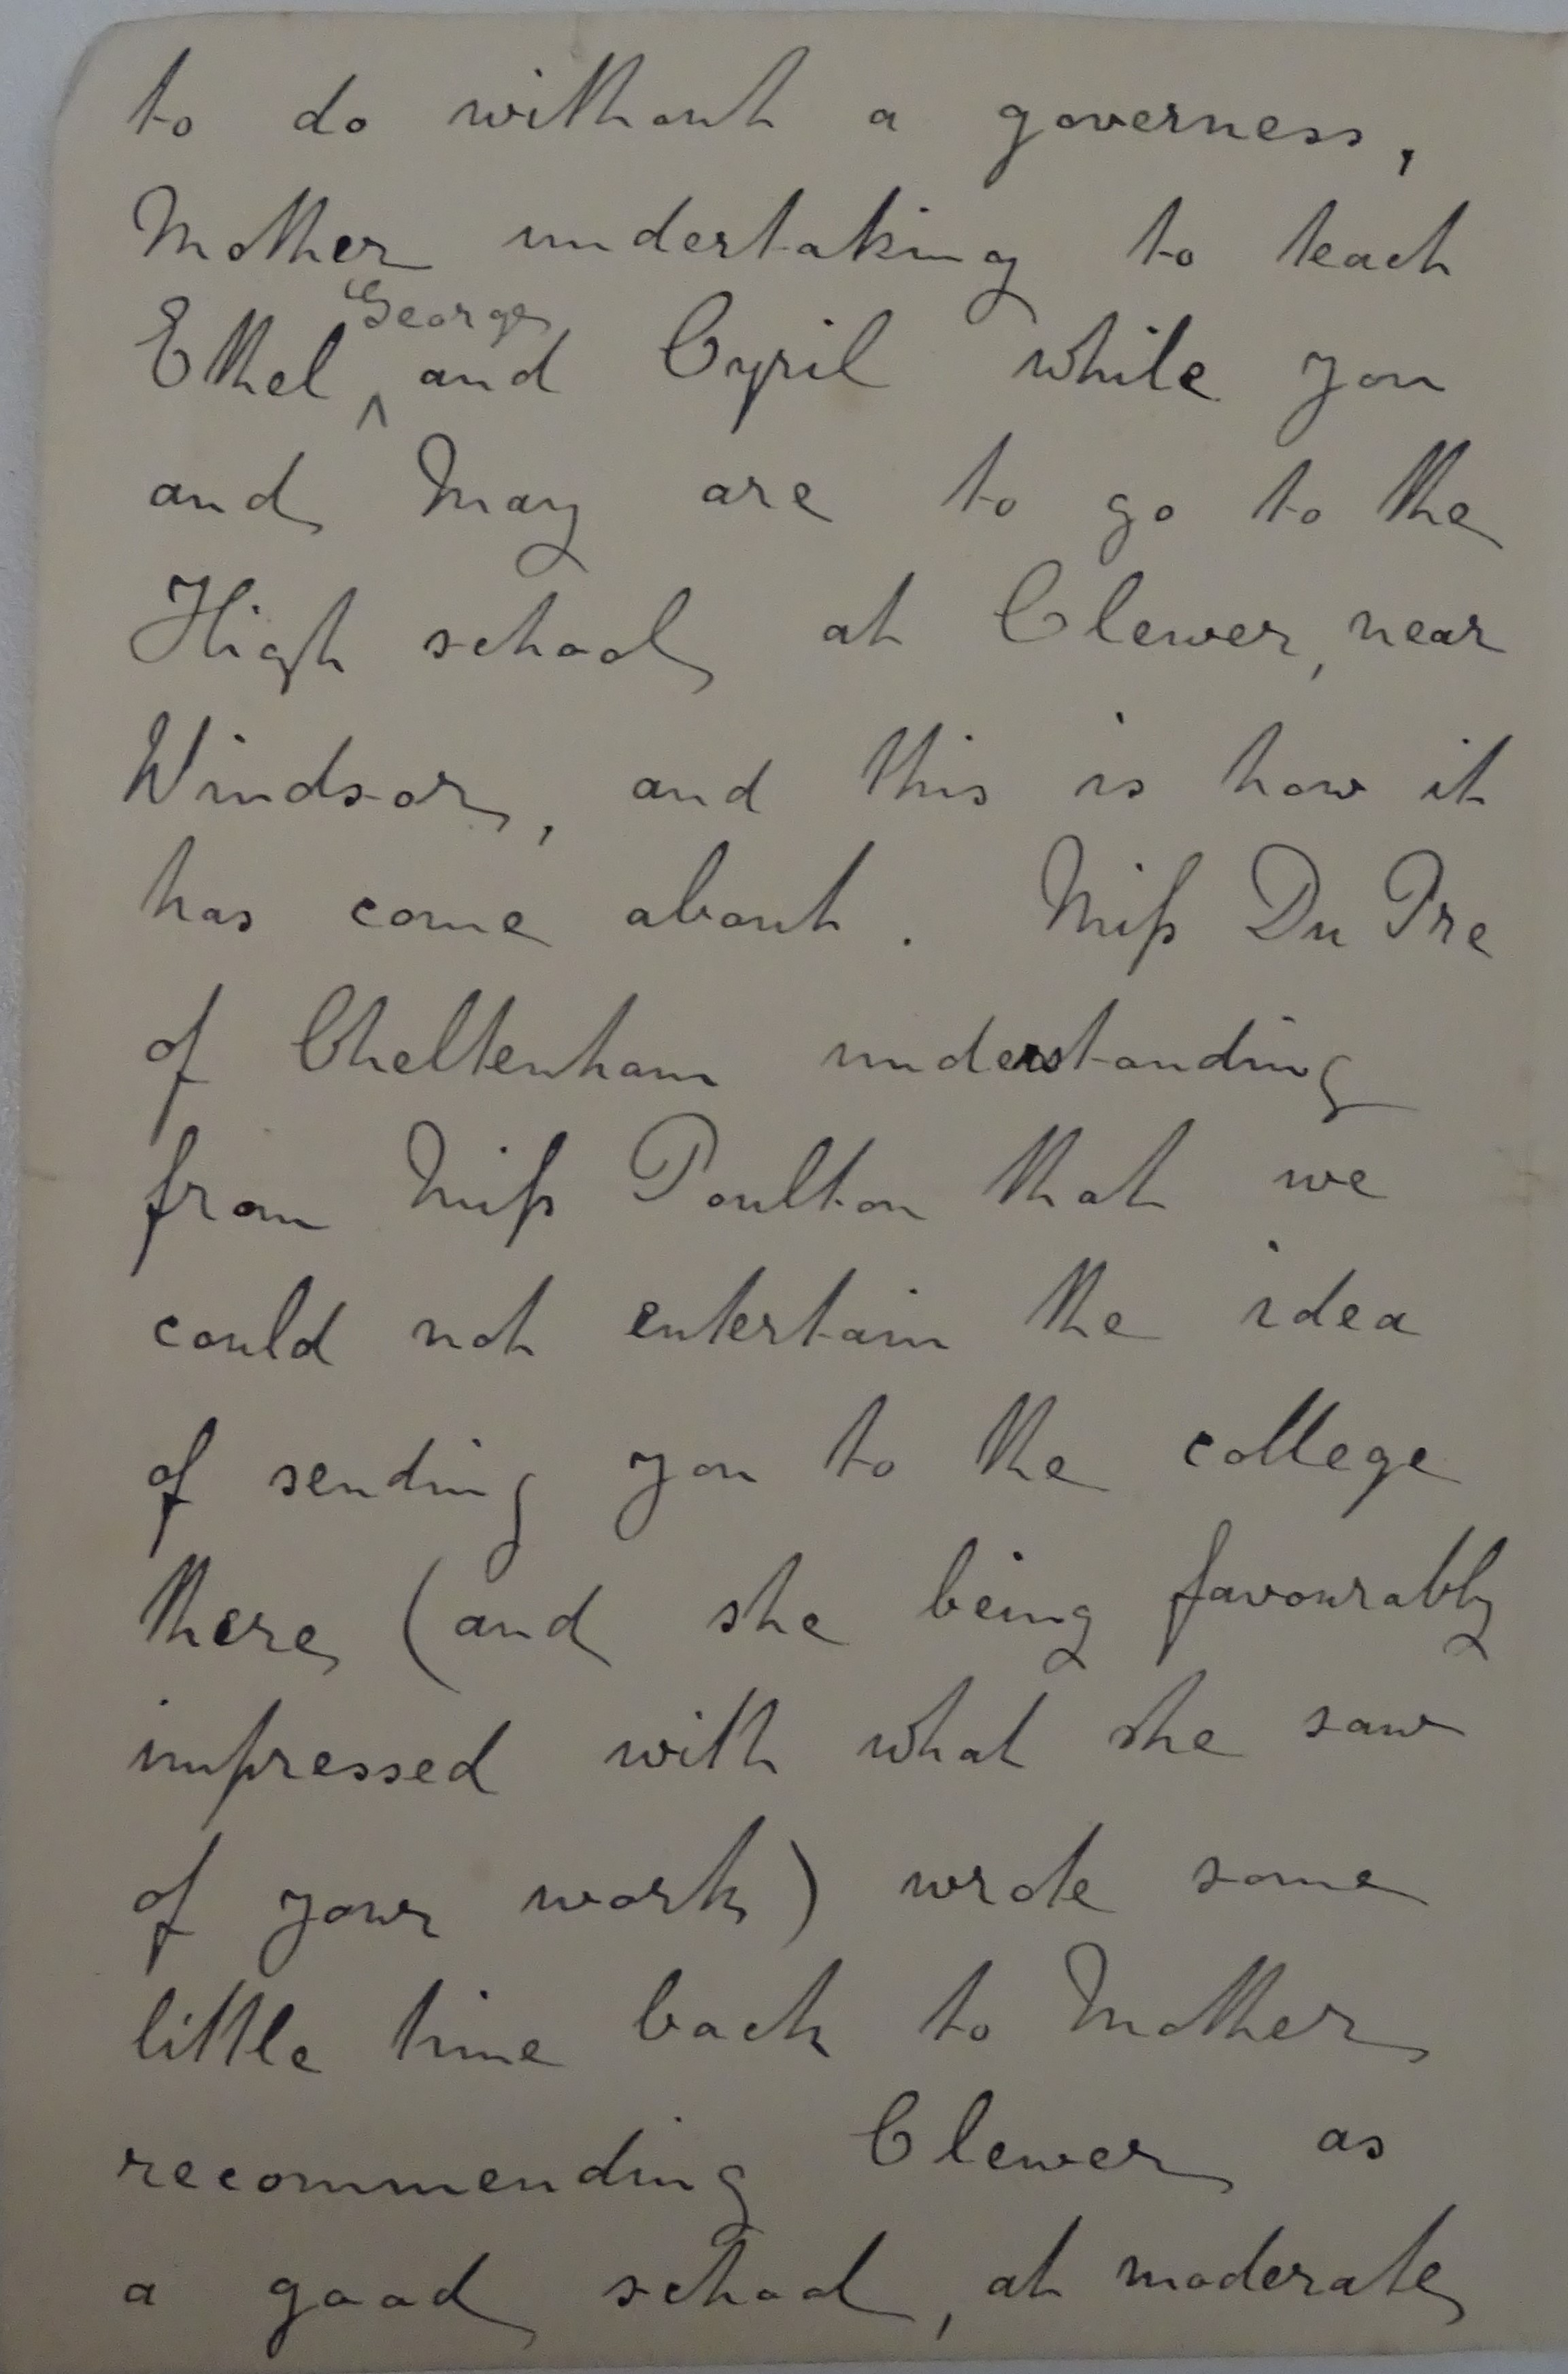 to do without a governess,
Mother undertaking to teach
George
Ethel ^ and Cyril while you
and May are to go to the
High school at Clewer, near
Windsor, and this is how it
has come about. Miſs Du Pre
of Cheltenham understanding
from Miſs Poulton that we
could not entertain the idea
of sending you to the college
there (and she being favourably
impressed with what she saw
of your work) wrote some
little time back to Mother
recommending Clewer as
a good school, at moderate